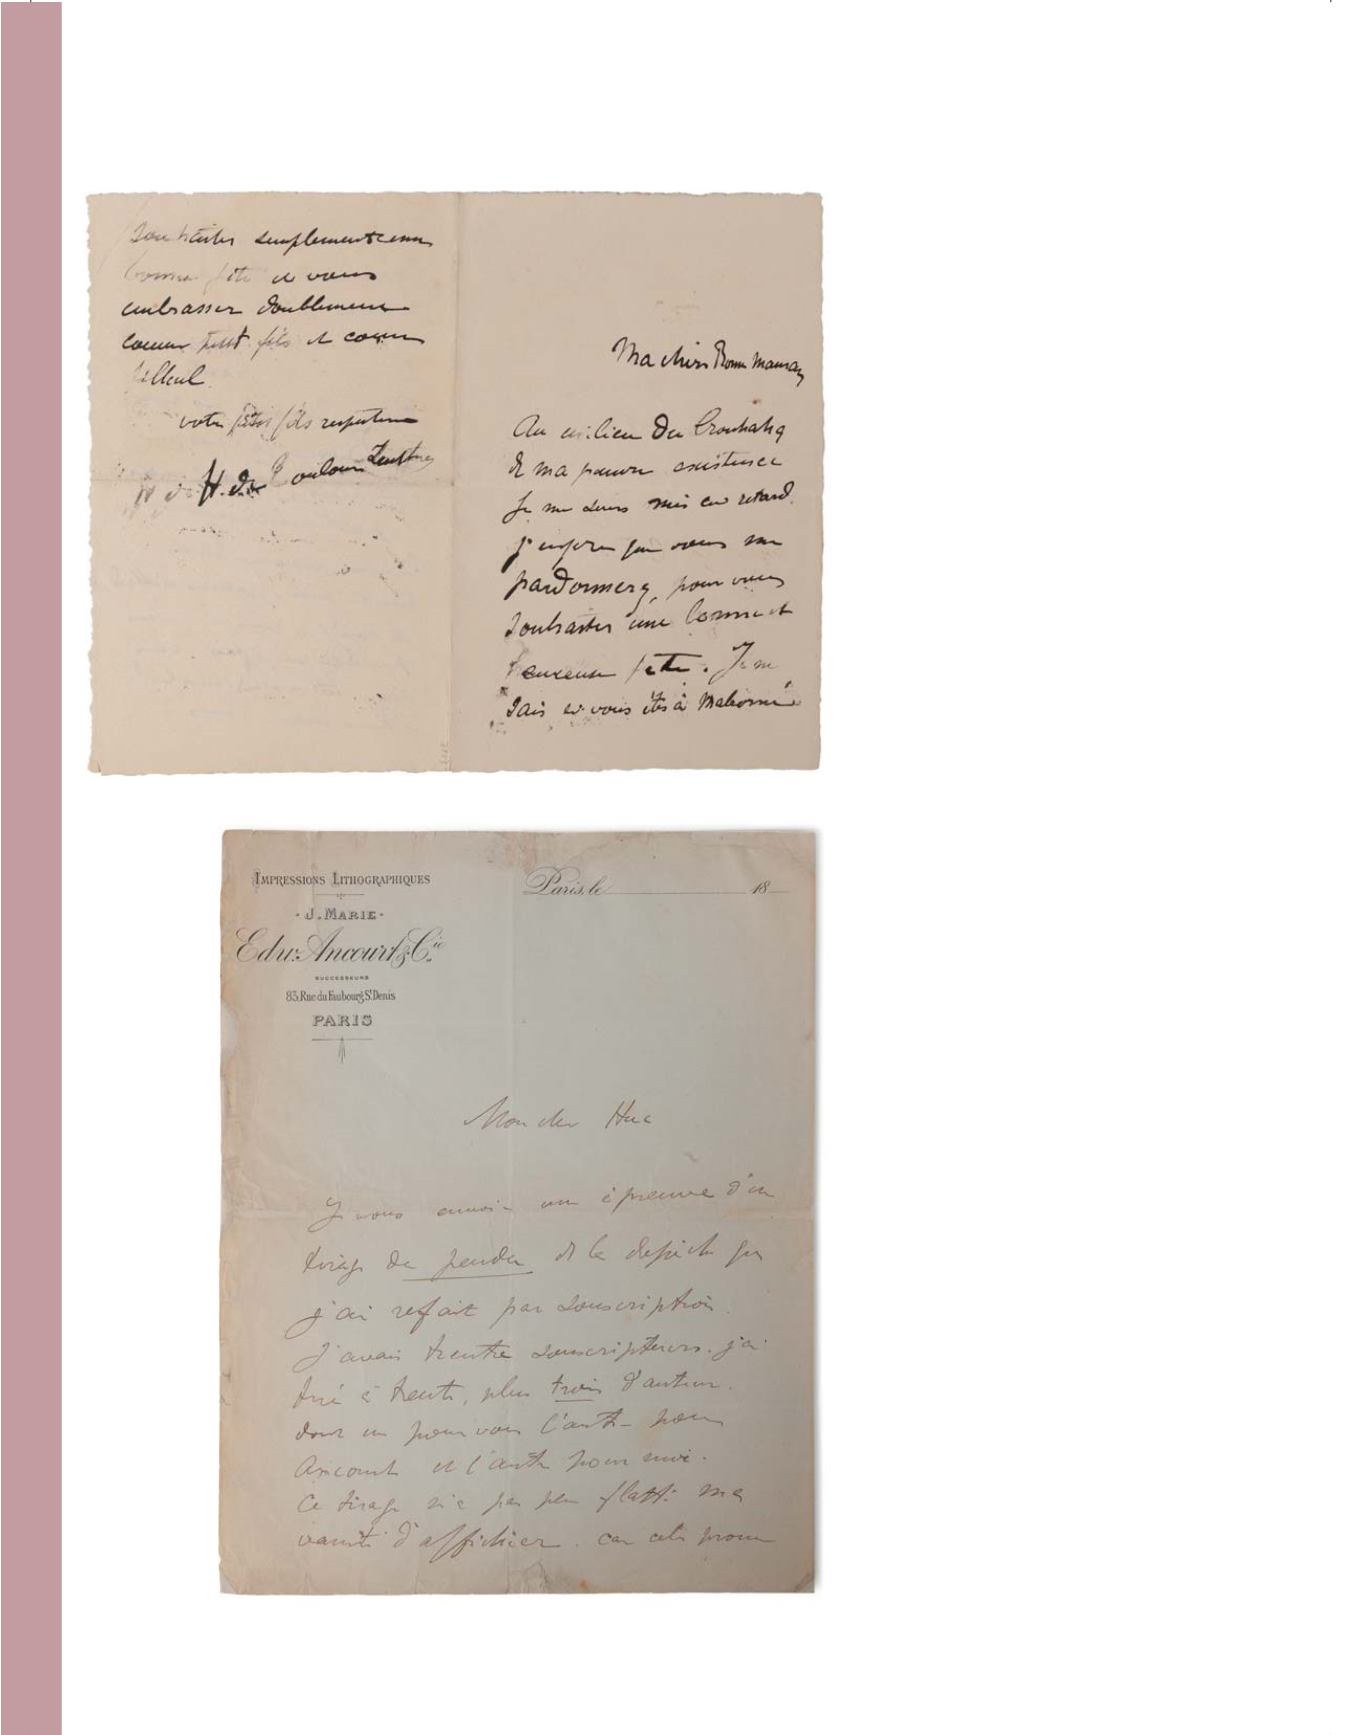 Ma chère Bonne Maman
Au milieu du brouhaha
de ma pauvre existence
je me suis mis en retard.
J'espère que vous me
pardonnerez, pour vous
souhaiter une bonne et
heureuse fête. Je ne
sais si vous êtes à
souhaiter simplement une
bonne fête et vous
embrasser doublement
comme petit fils et comme
filleul
votre petit fils respectueux
H. de Toulouse Lautrec
IMPRESSIONS LITHOGRAPHIQUES
J. MARIE
Edw. Ancourt & Cie
SUCCESSEURS
83, Rue du Faubourg St Denis
PARIS
Paris, le 18
Mon cher Huc
Je vous envoie une épreuve d'un
tirage du pendu de la depêche que
j'ai refait par souscription.
J'avais trente souscripteurs. j'ai
tiré à trente, plus trois d'auteur.
dont un pour vous l'autre pour
Ancourt et l'autre pour moi.
Ce tirage n'a pas peu flatté ma
vanité d'affichier. car cela prouve